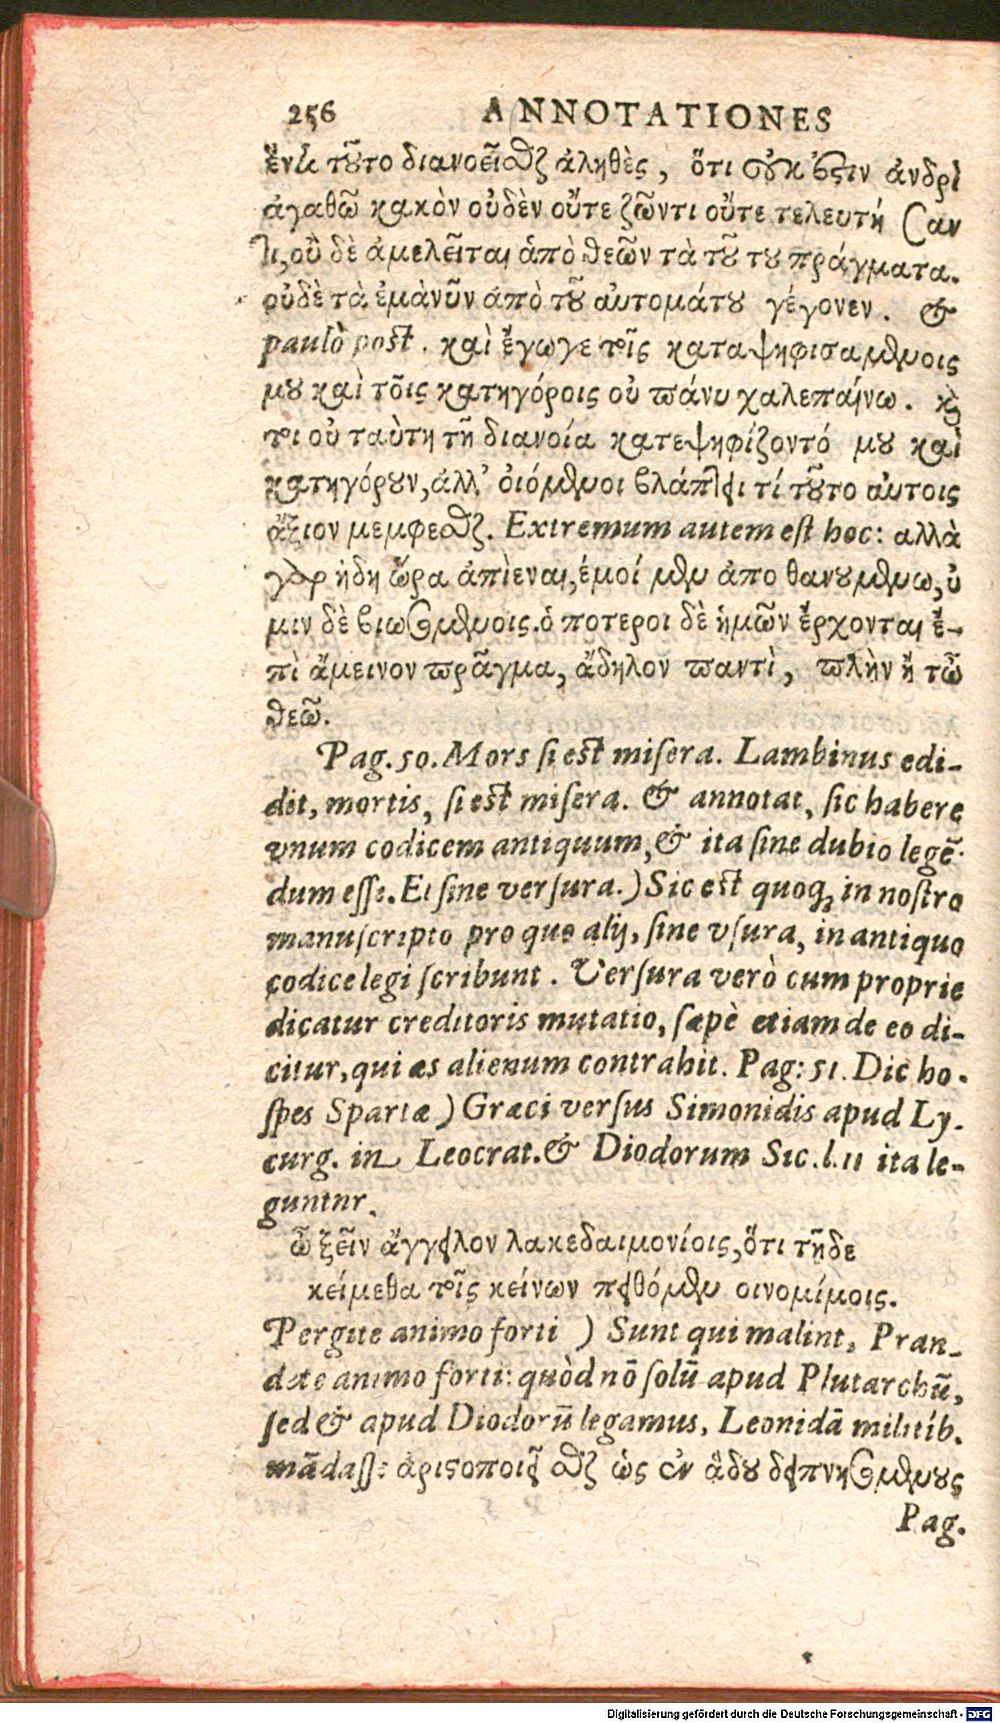 256 ANNOTATIONES
ἕν τι τοῦτο διανοεῖσθαι ἀληθὲς, ὅτι οὐκ ἔστιν ἀνδρὶ
ἀγαθῶ κακὸν οὐδὲν οὔτε ζῶντι οὔτε τελευτήσαν
τι, οὐ δὲ ἀμελεῖται ἀπὸ θεῶν τὰ τούτου πράγματα.
οὐδὲ τὰ ἐμὰ νῦν ἀπὸ τοῦ αὐτομάτου γέγονεν. &
paulò post. καὶ ἔγωγε τοῖς καταψηφισαμένοις
μου καὶ τοῖς κατηγόροις οὐ πάνυ χαλεπαίνω. καί
τοι οὐ ταὺτη τῆ διανοία κατεψηφίζοντό μου καὶ
κατηγόρουν, ἀλλ' οἰόμενοι βλάπτειν τί τοῦτο αὐτοις
ἄξιον μεμφεσθαι. Extremum autem est hoc: αλλὰ
γὰρ ἠδη ὥρα ἀπὶεναι, ἐμοί μὲν ἀπο θανουμένω, ὑ
μιν δὲ βιωσομένοις. ὁ ποτεροι δὲ ἡμῶν ἔρχονται ἐ-
πὶ ἄμεινον πρᾶγμα, ἄδηλον παντὶ, πλὴν ἢ τῶ
θεῶ.
Pag. 50. Mors si est misera. Lambinus edi-
dit, mortis, si est misera. & annotat, sic habere
vnum codicem antiquum, & ita sine dubio legē-
dum esse. Et sine versura.) Sic est quoq; in nostro
manuscripto pro quo alij, sine vsura, in antiquo
codice legi scribunt. Versura verò cum proprie
dicatur creditoris mutatio, sæpè etiam de eo di-
citur, qui æs alienum contrahit. Pag: 51. Dic ho-
spes Spartæ ) Græci versus Simonidis apud Ly-
curg. in Leocrat. & Diodorum Sic. l. 11 ita le-
guntnr.
ὦ ξεῖν ἄγγειλον λακεδαιμονίοις, ὅτι τῆδε
κείμεθα τοῖς κείνων πειθόμενοι νομίμοις.
Pergite animo forti ) Sunt qui malint, Pran-
dete animo forti: quòd nō solū apud Plutarchū,
sed & apud Diodorū legamus, Leonidā militib.
mādasse ἀριστοποιεῖσθαι ὡς ἐν ἅδου δειπνησομένους
Pag.
Digitalisierung gefördert durch die Deutsche Forschungsgemeinschaft - DFG